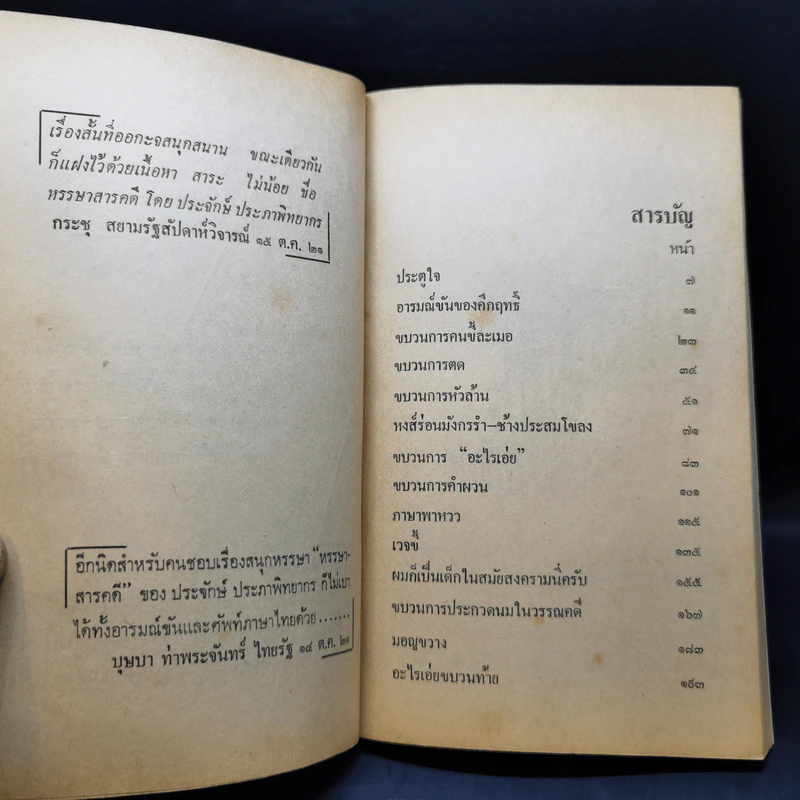 เรื่องสั้นที่ออกะจสนุกสนาน ขณะเดียวกัน
ก็แฝงไว้ด้วยเนื้อหา สาระ ไม่น้อย ชื่อ
หรรษาสารคดี โดย ประจักษ์ ประภาพิทยากร
กระชุ สยามรัฐสัปดาห์วิจารณ์ ๑๕ ต.ค. ๒๑
อีกนิดสำหรับคนชอบเรื่องสนุกหรรษา "หรรษา-
สารคดี" ของ ประจักษ์ ประภาพิทยากร ก็ไม่เบา
ได้ทั้งอารมณ์ขันและศัพท์ภาษาไทยด้วย.......
บุษบา ท่าพระจันทร์ ไทยรัฐ ๑๔ ต.ค. ๒๑
สารบัญ
หน้า
ประตูใจ ๗
อารมณ์ขันของคึกฤทธิ์ ๑๑
ขบวนการคนขี้ละเมอ ๒๓
ขบวนการตด ๓๔
ขบวนการหัวล้าน ๕๑
หงส์ร่อนมังกรรำ–ช้างประสมโขลง ๗๑
ขบวนการ "อะไรเอ่ย" ๘๓
ขบวนการคำผวน ๑๐๑
ภาษาพาหวว ๑๑๕
เวจขี้ ๑๓๕
ผมก็เป็นเด็กในสมัยสงครามนี่ครับ ๑๕๕
ขบวนการประกวดนมในวรรณคดี ๑๖๗
มอญขวาง ๑๘๓
อะไรเอ่ยขบวนท้าย ๑๙๓